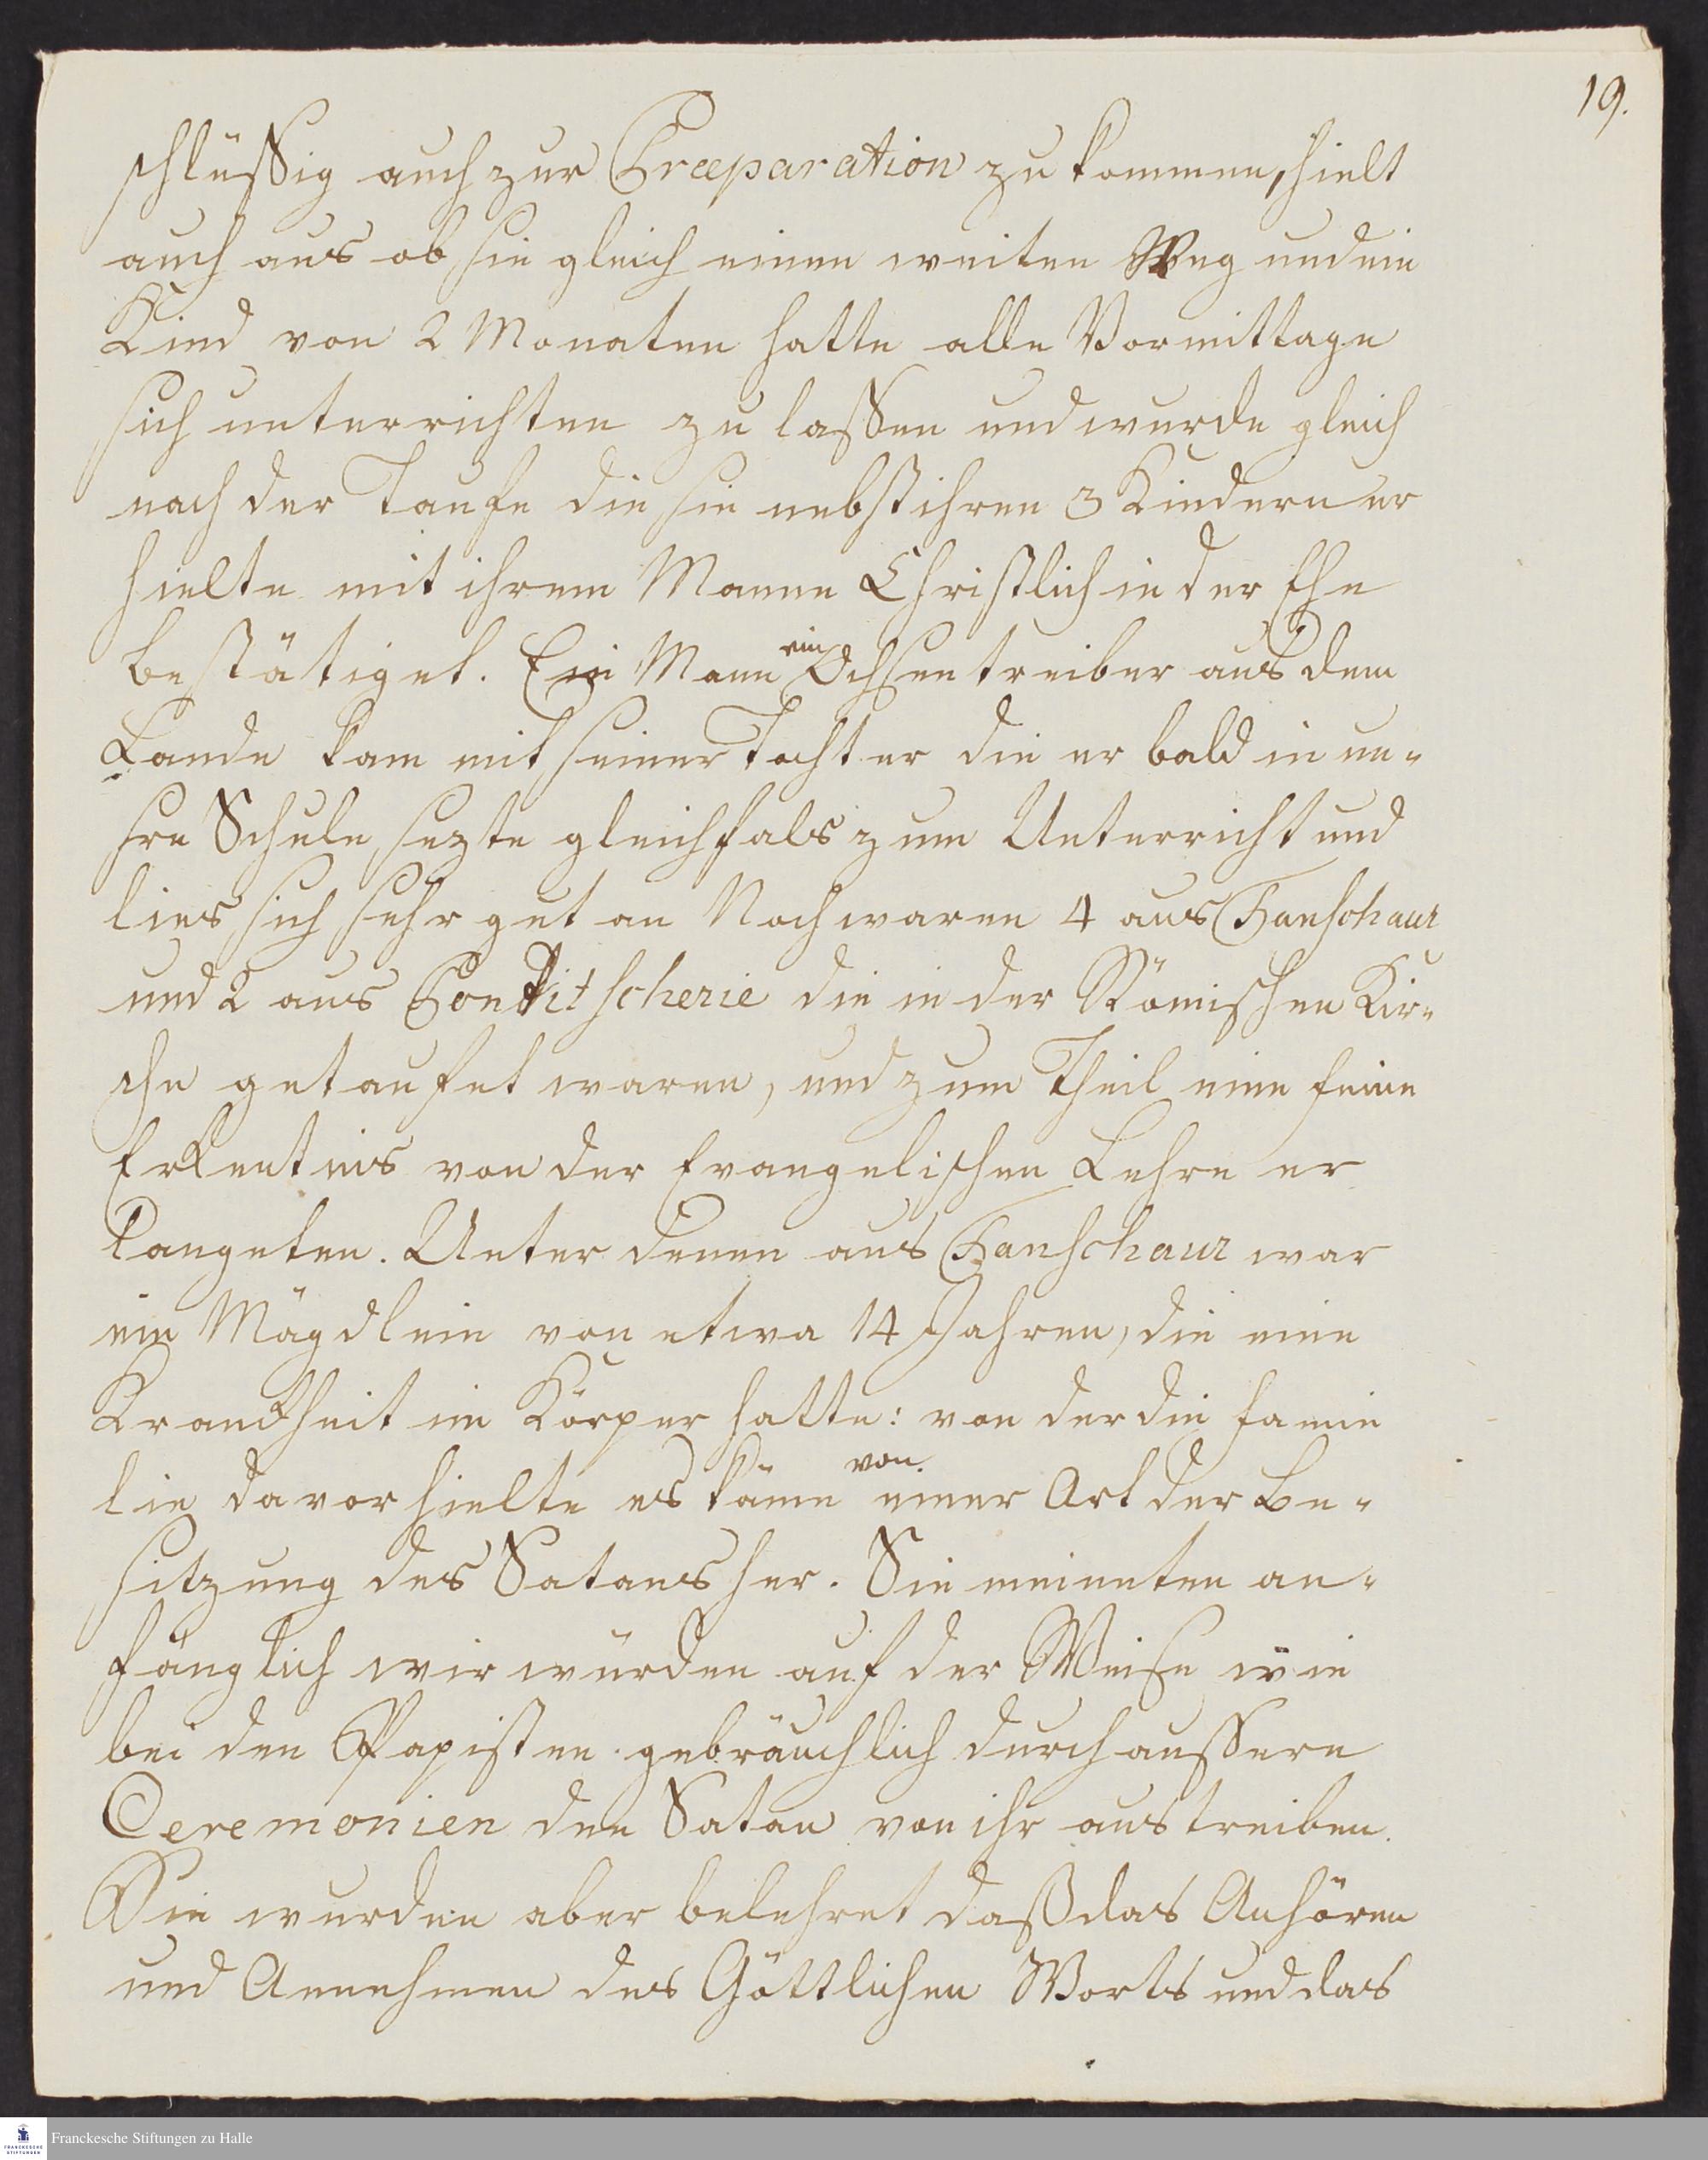 19.
schlüßig auch zur Præparation zu kommen, hielt
auch aus ob sie gleich einen weiten Weg und ein
Kind von 2 Monaten hatte alle Vormittage
sich unterrichten zu laßen und wurde gleich
nach der Taufe die sie nebst ihren 3 Kindern er
hielte mit ihrem Manne Christlich in der Ehe
bestätiget. Ein Mann ein Ochsentreiber aus dem
Lande kam mit seiner Tochter die er bald in un-
sre Schule sezte gleichfals zum Unterricht und
lies sich sehr gut an Noch waren 4 aus Tanschaur
und 2 aus Ponditscherie die in der Römischen Kir-
che getaufet waren, und zum Theil eine feine
Erkentnis von der Evangelischen Lehre er
langeten. Unter denen aus Tanschaur war
ein Mägdlein von etwa 14 Jahren, die eine
Kranckheit im Körper hatte: von der die Famie
lie davor hielte es käme von einer Art der Be-
sitzung des Satans her. Sie meineten an-
fänglich wir würden auf der Weise wie
bei den Papisten gebräuchlich durch aussere
Ceremonien den Satan von ihr austreiben.
Sie wurden aber belehret daß das Anhören
und Annehmen des Göttlichen Worts und das
FRANCKESCHE STIFTUNGEN
Franckesche Stiftungen zu Halle